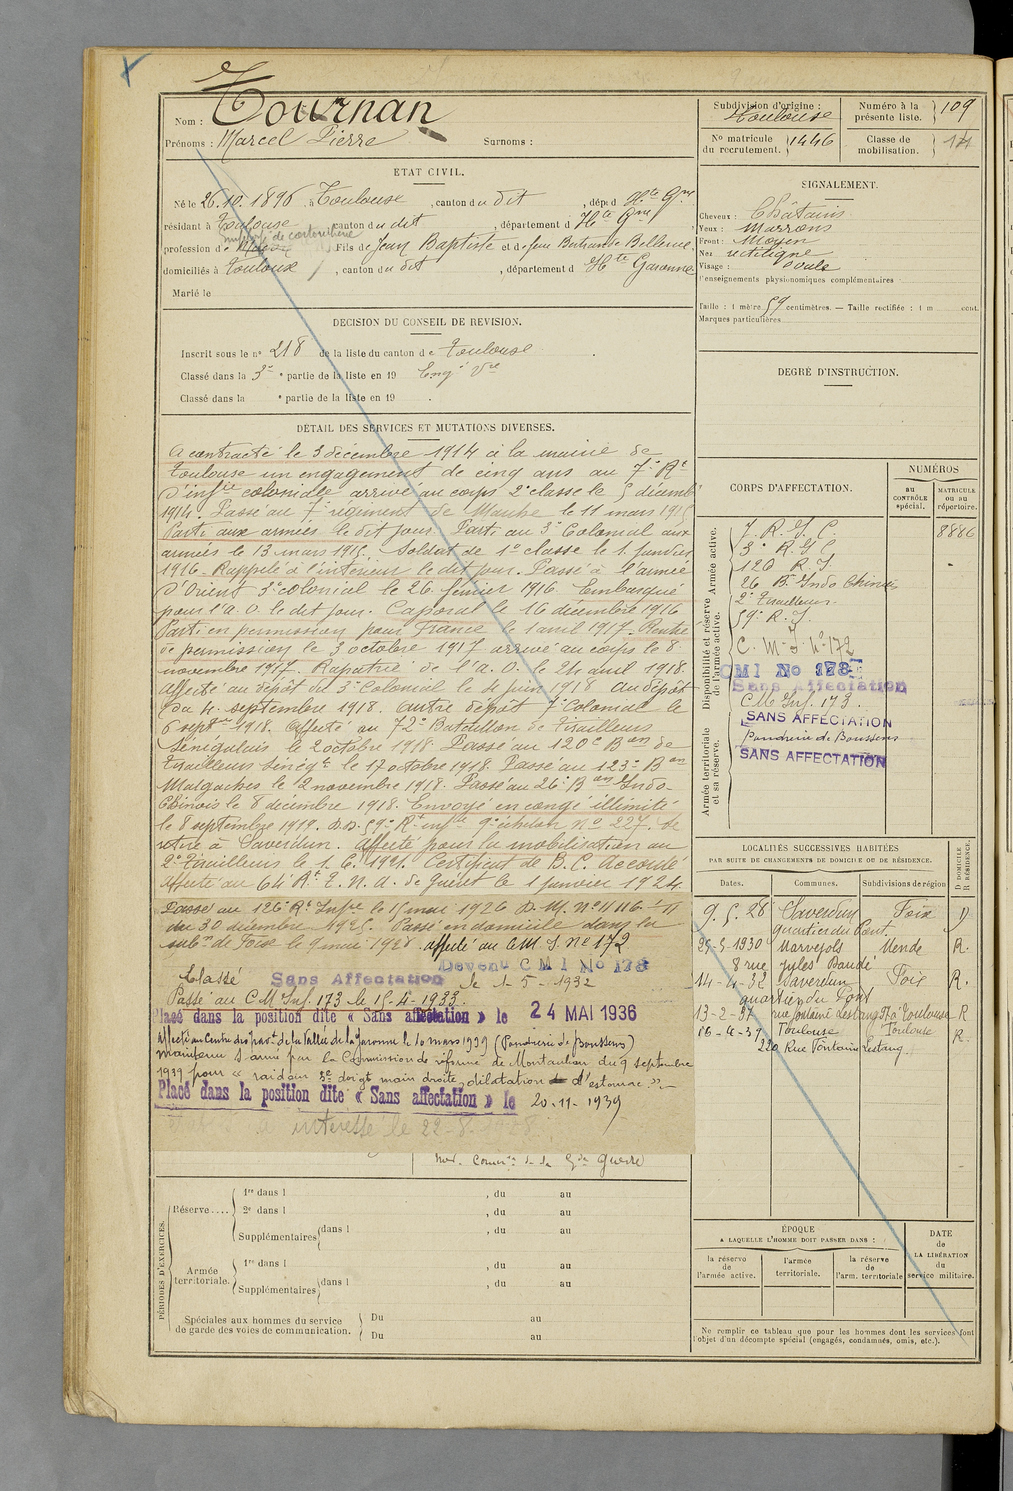 Nom : Tournan
Prénoms : Marcel Pierre Surnoms :
ETAT CIVIL.
Né le 26.10.1896, à Toulouse, canton du dit, dép d Hte Gne
résidant à Toulouse, canton du dit, département d Hte Gne
profession de, Fils de Jean Baptiste et de
domiciliés à Toulouse, canton du dit, département d Hte Garonne
Marié le
DÉCISION DU CONSEIL DE REVISION.
Inscrit sous le n° 218 de la liste du canton de Toulouse
Classé dans la 3e partie de la liste en 19 Engé Vre
Classé dans la e partie de la liste en 19 .
DÉTAIL DES SERVICES ET MUTATIONS DIVERSES.
A contracté le 3 décembre 1914 à la mairie de
Toulouse un engagement de cinq ans au 7e Rt
d'infie coloniale arrivé au corps 2e classe le 5 décemb
1914. Passé au 7e régiment de Marche le 11 mars 1915
Parti aux armées le dit jour. Parti au 3e Colonial aux
armées le 13 mars 1915. Soldat de 1e classe le 1 janvier
1916. Rappelé à l'intérieur le dit jour. Passé à l'armée
d'Orient 3e colonial le 26 février 1916. Embarqué
pour l'A. O. le dit jour. Caporal le 16 décembre 1916
Parti en permission pour France le 1 avril 1917. Rentré
de permission le 3 octobre 1917 arrivé au corps le 8
novembre 1917. Rapatrié de l'A. O. le 24 avril 1918.
Affecté au dépôt du 3e Colonial le 4 juin 1918 au dépôt
du 4. septembre 1918. Autre dépôt 7e Colonial le
6 septbre 1918. Affecté au 72e Bataillon de Tirailleurs
Sénégalais le 2 octobre 1918. Passé au 120e Bon de
Tirailleurs Sénégt le 17 octobre 1918. Passé au 123e Bon
Malgaches le 2 novembre 1918. Passé au 26e Bon Indo-
Chinois le 8 décembre 1918. Envoyé en congé illimité
le 8 septembre 1919. D.D. 59e Rt infie 9e échelon No 227. Se
retire à Saverdun. Affecté pour la mobilisation au
2e Tirailleurs le 1. 6. 1921. Certificat de B. C. Accordé
Affecté au 64e Rt T. N. A. de Guéret le 1 janvier 1924.
Passé au 126e Rt Infie le 15 mai 1926 D. M. No 11116
du 30 décembre 1925. Passé en domicile dans la
subon de Foix le 9 mai 1928. affecté au C M I No 172
Devenu C M I No 173
Classé Sans Affectation le 1-5-1932
Passé au C M Inf. 173 le 15-4-1933.
Placé dans la position dite « Sans affectation » le 24 MAI 1936
Affecté au Centre de la Vallée de la Garonne le 10 mars 1939 (Poudrerie de Boussens)
Maintenu S. armé par la Commission de réforme de Montauban du 9 septembre
1939 pour « raideur 5e doigt main droite, dilatation d'estomac ».
Placé dans la position dite « Sans affectation » le 20-11-1939
intéressé le 22-8-1928
Guerre
PÉRIODES D'EXERCICES.
Réserve.... 1re dans l , du au
2e dans l , du au
Supplémentaires dans l , du au
Armée territoriale. 1re dans l , du au
Supplémentaires dans l , du au
Spéciales aux hommes du service
de garde des voies de communication. Du au
Du au
Subdivision d'origine : Toulouse
Numéro à la présente liste. 109
No matricule du recrutement. 1446
Classe de mobilisation. 14
SIGNALEMENT.
Cheveux : Châtains
Yeux : Marrons
Front : Moyen
Nez rectiligne
Visage : ovale
Renseignements physionomiques complémentaires
Taille : 1 mètre 59 centimètres. — Taille rectifiée : 1 m cent.
Marques particulières
DEGRÉ D'INSTRUCTION.
CORPS D'AFFECTATION.
NUMÉROS
au CONTRÔLE spécial.
MATRICULE ou au répertoire.
Armée active.
Disponibilité et réserve de l'armée active.
Armée territoriale et sa réserve.
7. R. I. C. 8886
3e R. I. C
120 R. I
26 Bon Indo Chinois
2e Tirailleurs
59e R. I.
C. M. I No 172
CMI No 173
Sans Affectation
C M Inf. 173.
SANS AFFECTATION
Poudrerie de Boussens
SANS AFFECTATION
LOCALITÉS SUCCESSIVES HABITÉES
PAR SUITE DE CHANGEMENTS DE DOMICILE OU DE RÉSIDENCE.
D DOMICILE R RÉSIDENCE.
Dates. Communes. Subdivisions de région
9. 5. 28 Saverdun Foix D
quartier du Pont
29-5-1930 Marvejols Mende R.
8 rue Jules Baudé
14-4-32 Saverdun Foix R.
quartier du Pont
13-2-37 rue fontaine Lestang Toulouse R
16-4-37 Toulouse Toulouse R.
220 Rue Fontaine Lestang
ÉPOQUE
A LAQUELLE L'HOMME DOIT PASSER DANS :
la réserve de l'armée active.
l'armée territoriale.
la réserve de l'arm. territoriale
DATE de LA LIBÉRATION du service militaire.
Ne remplir ce tableau que pour les hommes dont les services font
l'objet d'un décompte spécial (engagés, condamnés, omis, etc.).